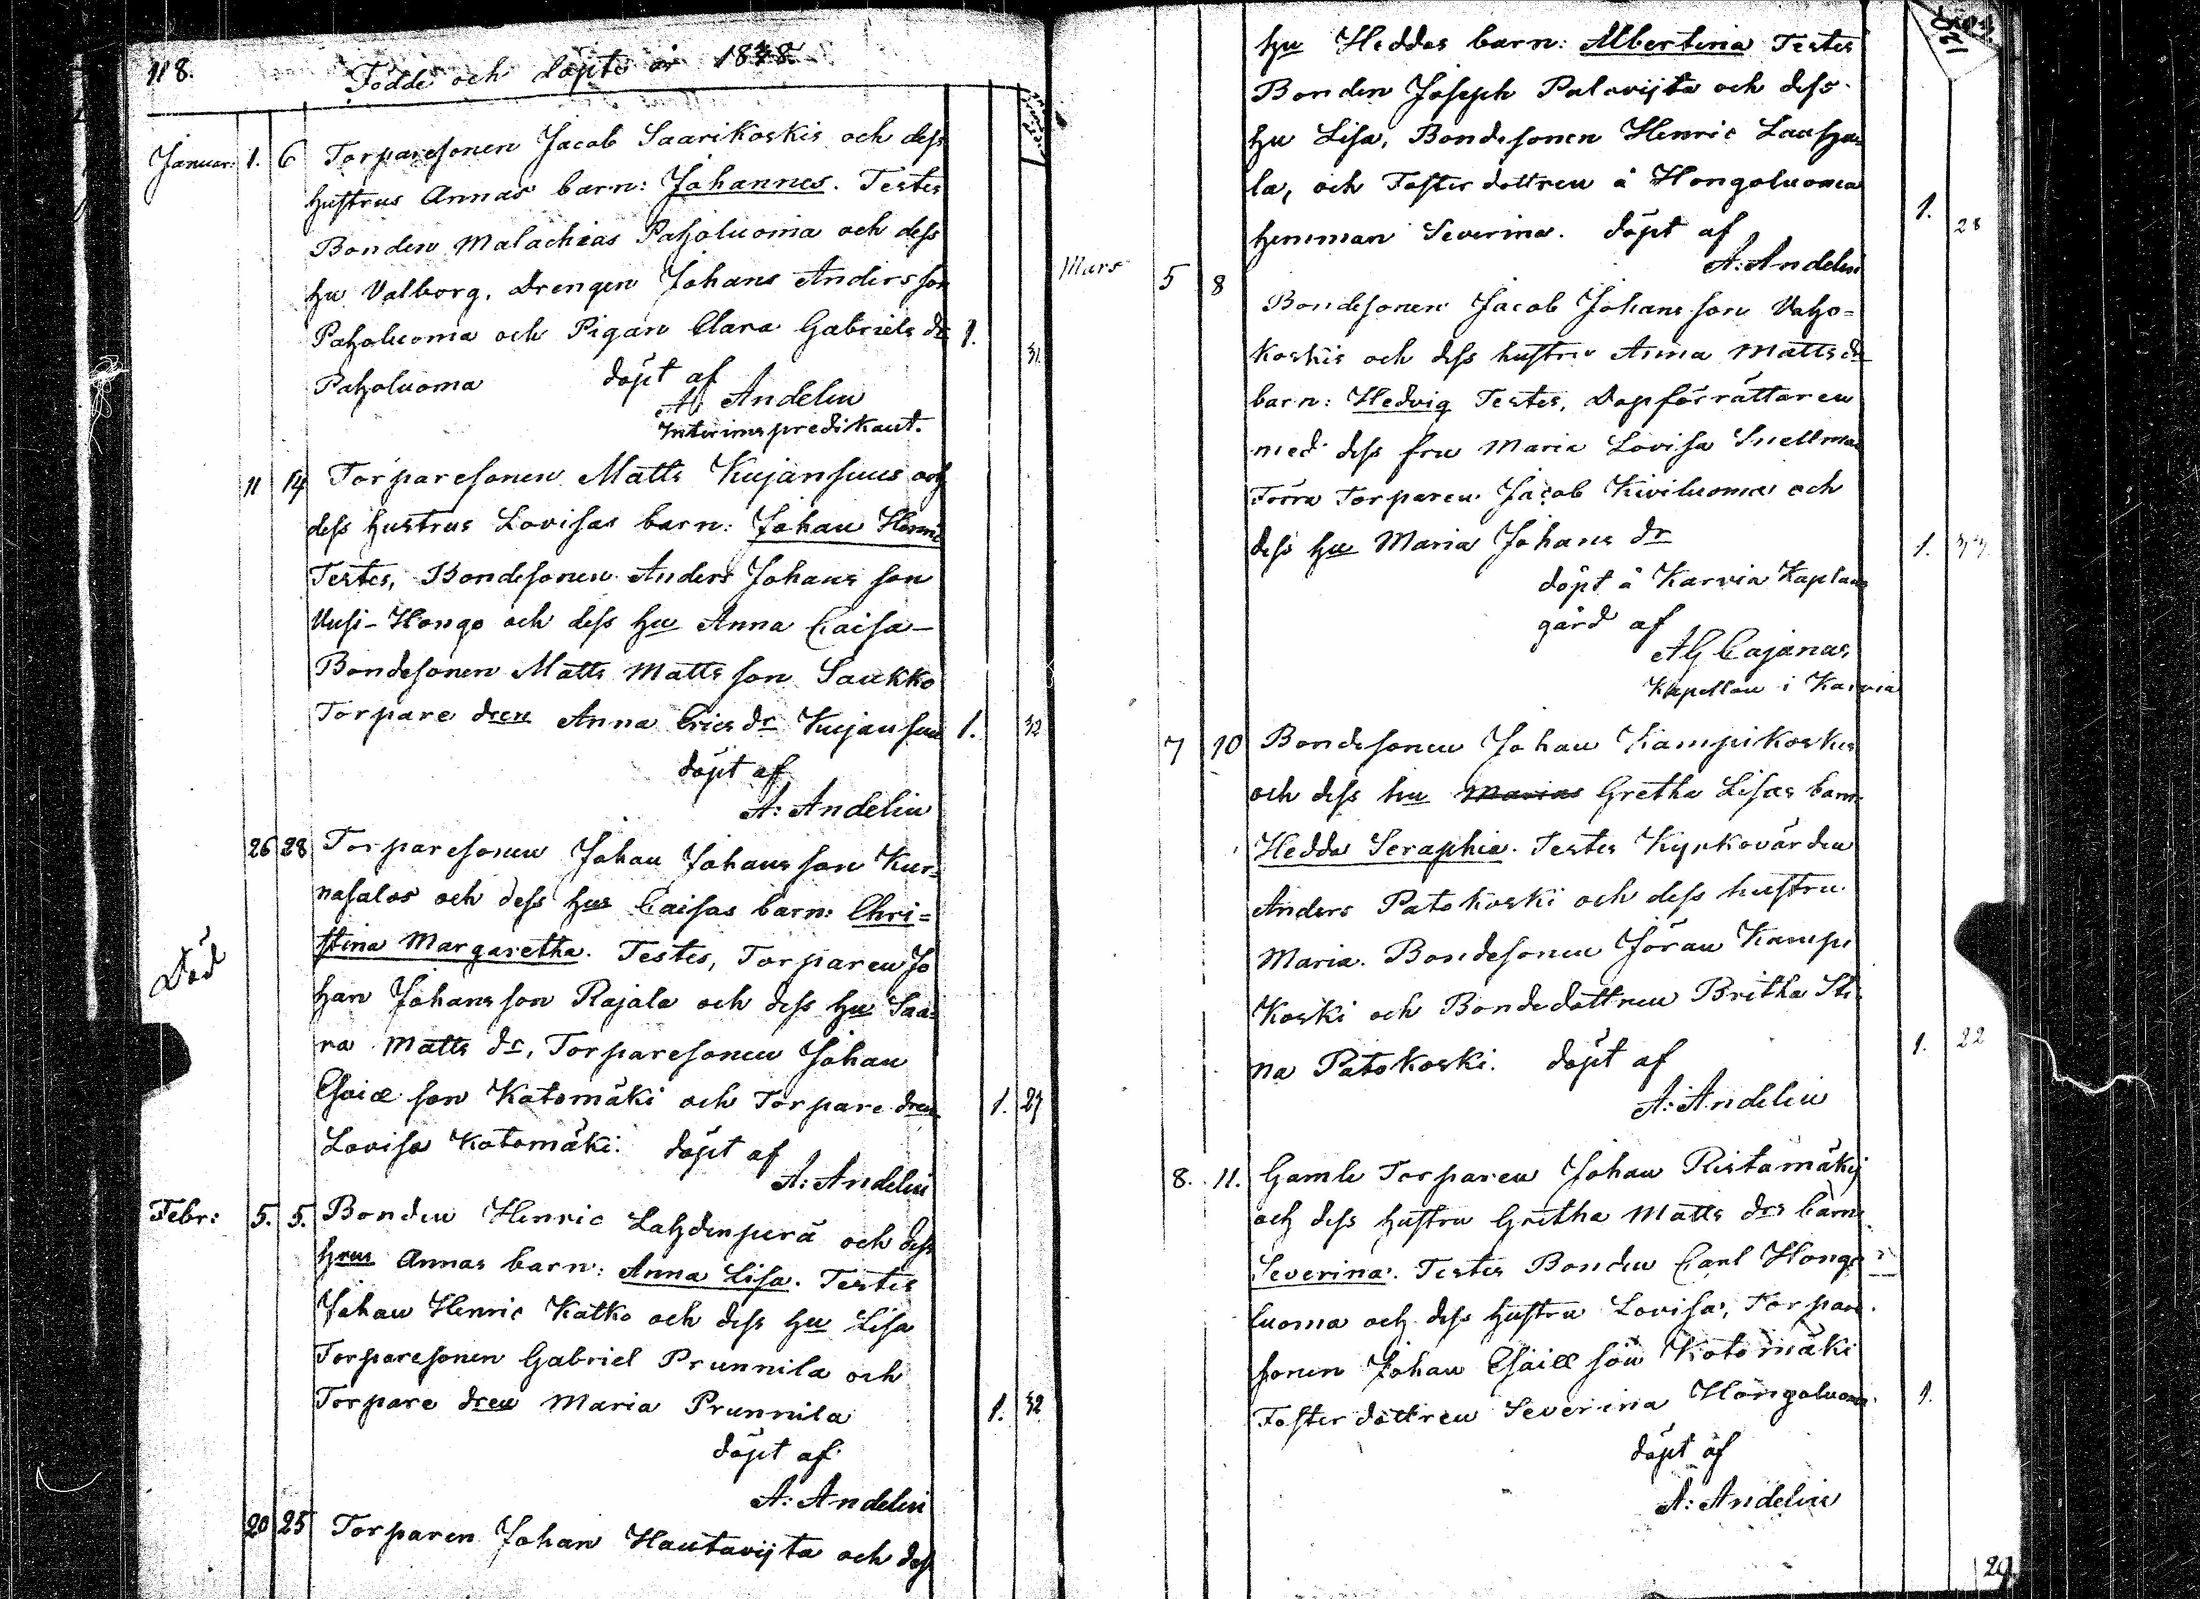 118.
Födde och döpte år 1848.
Januar: 1. 6 Torparesonen Jacob Saarikoskis och dess
hustrus Annas barn: Johannes. Testes
Bonden Malachias Paholuoma och dess
hu Valborg, Drengen Johans Anders son
Paholuoma och Pigan Clara Gabriels dr 1.
31.
Paholuoma döpt af
A: Andelin
Interimspredikant.
11 14 Torparesonen Matts Kujansuus och
dess hustrus Lovisas barn: Johan Henric
Testes, Bondesonen Anders Johans son
Uusi-Hongo och dess hu Anna Caisa
Bondesonen Matts Matts son Saukko
Torpare dren Anna Erics dr Kujansuu 1. 32
döpt af
A: Andelin
26 28 Torparesonen Johan Johans son Kur=
nasalos och dess hus Caisas barn: Chri=
stina Margaretha. Testes, Torparen Jo
Död
han Johans son Rajala och dess hu Saa=
ra Matts dr, Torparesonen Johan
Esaiæ son Katomäki och Torpare dren 1. 27
Lovisa Katomäki. döpt af
A: Andelin
Febr: 5. 5. Bonden Henric Lahdenperä och dess
hrus Annas barn: Anna Lisa. Testes
Johan Henric Katko och dess hu Lisa
Torparesonen Gabriel Prunnila och
Torpare dren Maria Prunnila 1. 32
döpt af
A: Andelin
20 25 Torparen Johan Hautavijta och dess
hu Heddas barn: Albertina Testes
Bonden Joseph Palovijta och dess
hu Lisa, Bondesonen Henric Lauha
la, och Fosterdottren å Hongoluoma
hemman Severina. döpt af 1. 28
A: Andelin
Mars 5 8 Bondesonen Jacob Johans son Vaho=
koskis och dess hustru Anna Matts dr
barn: Hedvig Testes, Dopförrättaren
med dess fru Maria Lovisa Snellman
Förra Torparen Jacob Kiviluoma och
dess hu Maria Johans dr 1. 33.
döpt å Karvia Kaplans
gård af
AG Cajanus
Kapellan i Karvia
7 10 Bondesonen Johan Kampikoskis
och dess hu Marias Gretha Lisas barn
Hedda Seraphia. Testes Kyrkovärden
Anders Patokoski och dess hustru
Maria. Bondesonen Jöran Kampi
Koski och Bondedottren Britha Sti
na Patokoski. döpt af 1. 22
A: Andelin
8. 11. Gamle Torparen Johan Ristamäkij
och dess hustru Gretha Matts drs barn
Severina. Testes Bonden Carl Hongo
luoma och dess hustru Lovisa, Torpare
sonen Johan Esaiæ son Kotomäki
Foster dottren Severina Hongoluoma 1.
döpt af
A: Andelin
29.